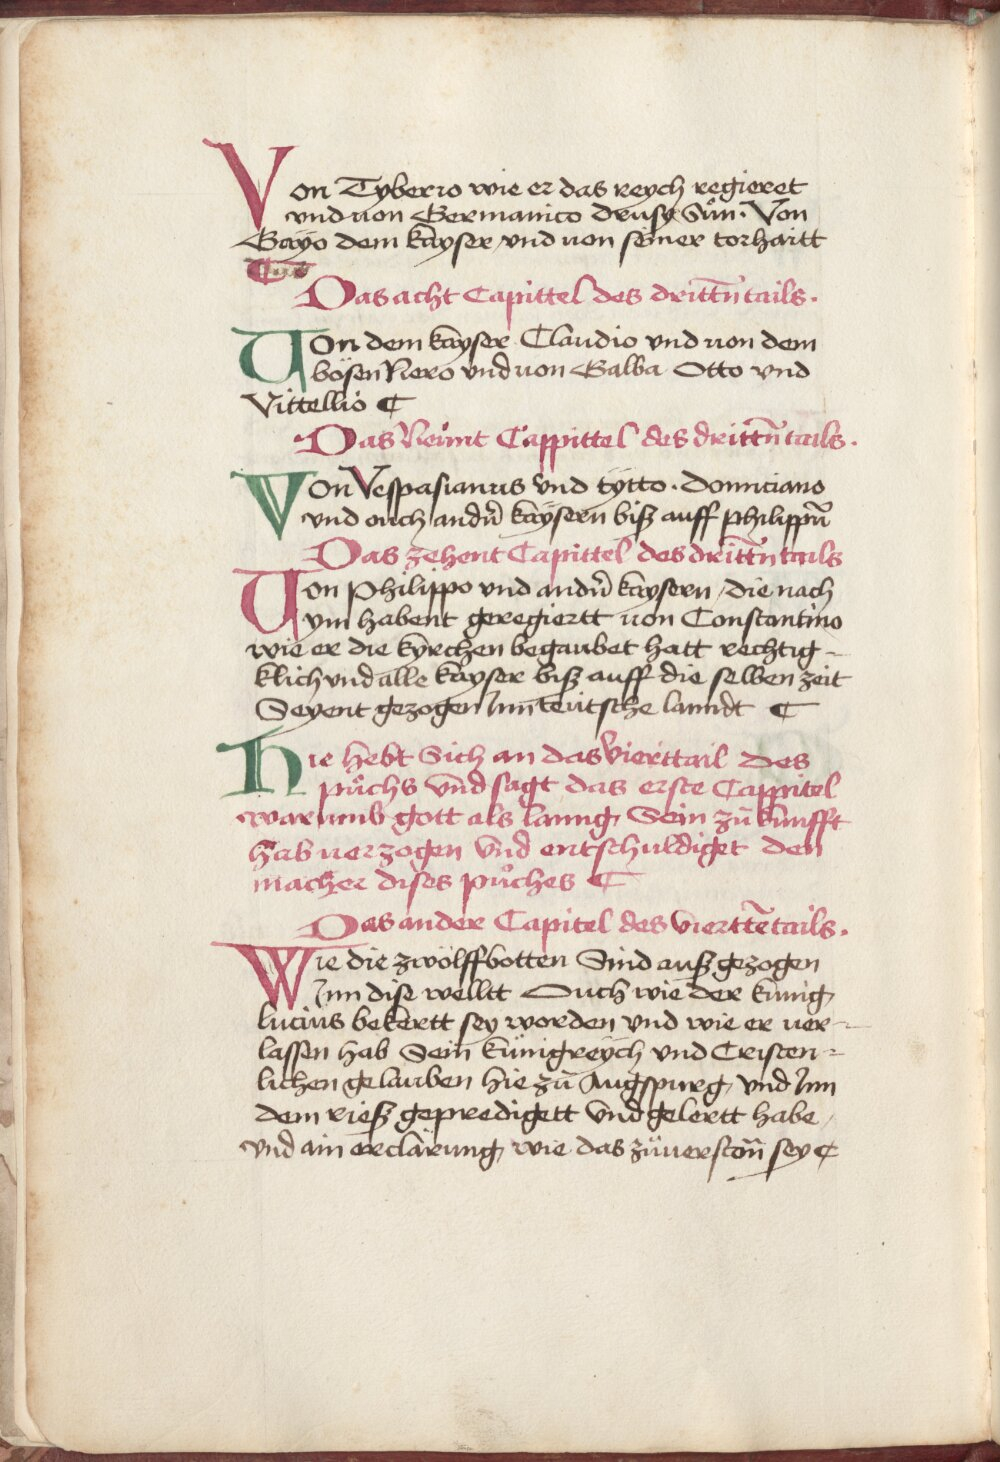 Von Tyberio wie er das reych regieret
vnd uon Germanico drusy Sůn. Von
Gayo dem kayser vnd uon seiner torhaitt
Das acht Capittel des drittñ tails.
Von dem kayser Claudio vnd uon dem
bösen Nero vnd uon Galba Otto vnd
Vittellio ¶
Das Neůnt Cappittel des drittñ tails.
Von Vespasianus vnd tÿtto. domiciano
vnd ouch andr̃ kaÿsern biß auff philippũ
Das zehent Capittel des drittñ tails
Von Philippo vnd andr̃ kaysern, die nach
ym habent geregiertt uon Constantino
wie er die kyrchen begaubet hatt rechtig-
klich vnd alle kayser biß auff die selben zeit
Seyent gezogen Inn teutsche lanndt ¶
Hie hebt Sich an das Vierttail des
půchs vnd sagt das erste Cappitel
warumb gott als lanng, Sein zů kunfft
hab uerzogen vnd entschuldiget den
macher dises půches ¶
Das ander Capitel des vierttẽ tails.
Wie die zwölffbotten Sind auß gezogen
Inn dise welltt Ouch wie der kunig,
lucius bekertt sey worden vnd wie er uer-
lassen hab Sein künigreych vnd Cristen-
lichen gelauben hie zů Augspurg, vnd Inn
dem rieß gepredigett vnd gelertt habe,
vnd ain erclärung, wie das zůuerstoñ sey ¶